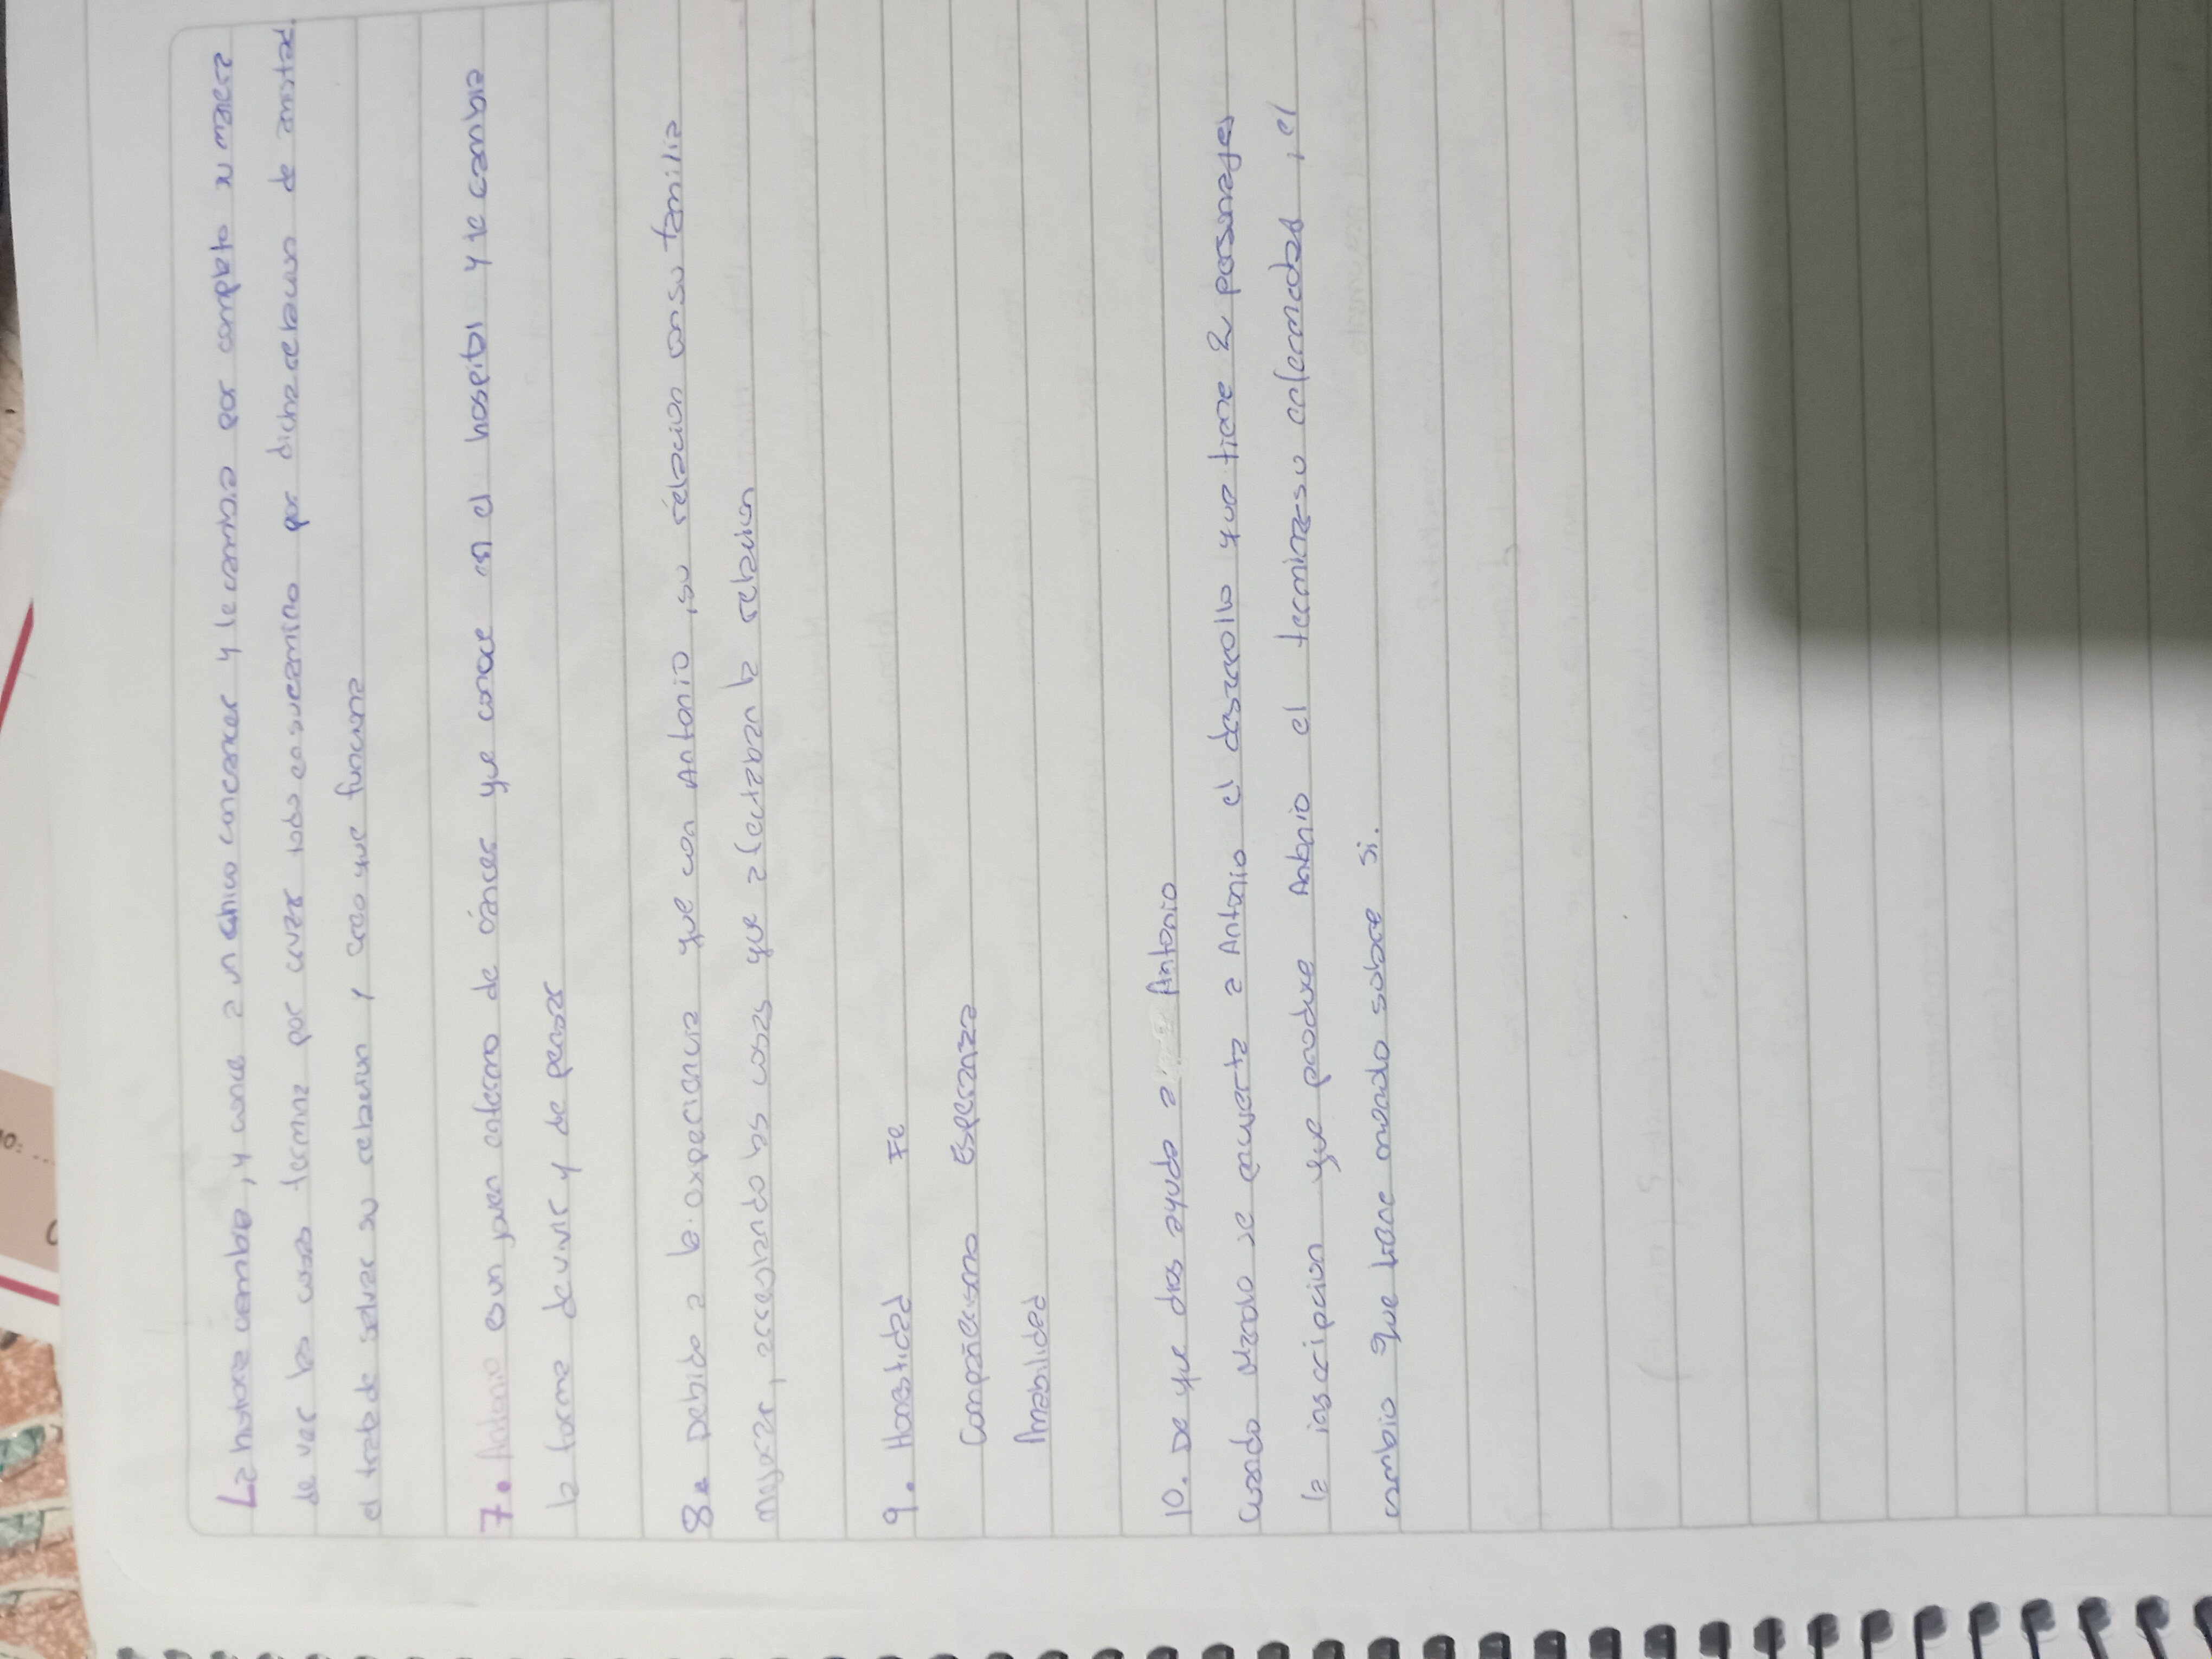 La historia cambia, y conoce a un chico con cancer y le cambia por completo su manera
de ver las cosas termina por cover todo ensucamino por dicha relacion de amistad.
el trata de salvar su relacion y creo que funciona
7. Antonio es un joven enfermo de cáncer que conoce en el hospital y le cambia
la forma de vivir y de pensar
8. Debido a la experiencia que con Antonio, su relacion con su familia
mejorar, arreglando las cosas que afectaban la relacion
9. Honestidad Fe
Compañerismo Esperanza
Amabilidad
10. De que dios ayudo a Antonio
Cuando se encuentra a Antonio el desarrollo que tiene 2 personajes
la inscripcion que produce Antonio el termina su enfermedad, el
cambio que tiene sobre si.